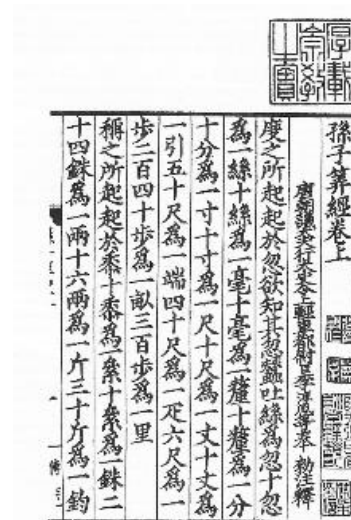 孫子筭經卷上
唐朝議大夫行太史令上輕車都尉臣李淳風等奉　勑注釋
度之所起起於忽欲知其忽蠶吐絲為忽十忽
為一絲十絲為一毫十毫為一釐十釐為一分
十分為一寸十寸為一尺十尺為一丈十丈為
一引五十尺為一端四十尺為一疋六尺為一
步二百四十步為一畝三百步為一里
稱之所起起於黍十黍為一絫十絫為一銖二
十四銖為一兩十六兩為一斤三十斤為一鈞